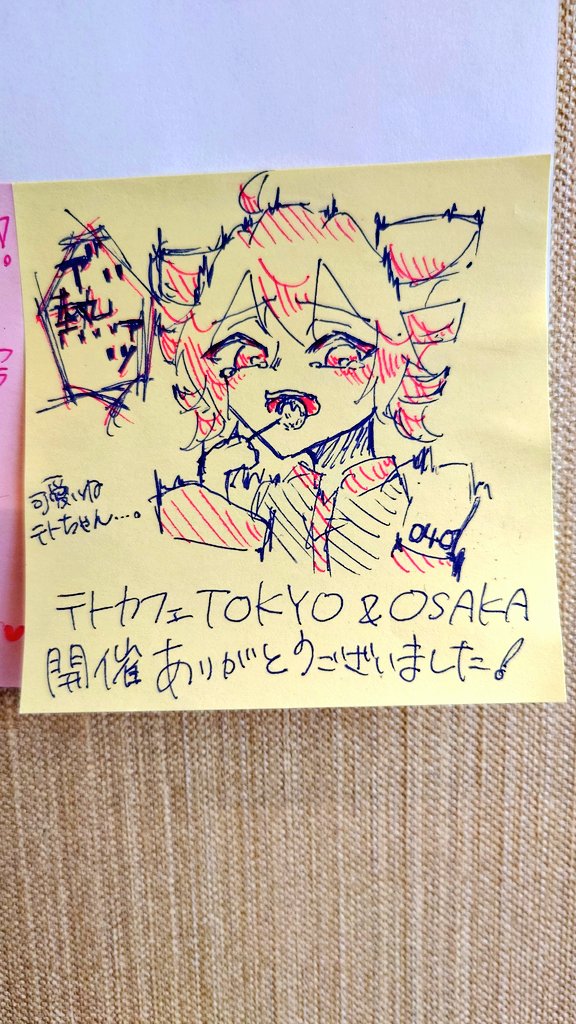 熱
可愛いね
テトちゃん…。
040
テトカフェTOKYO&OSAKA
開催ありがとうございました!